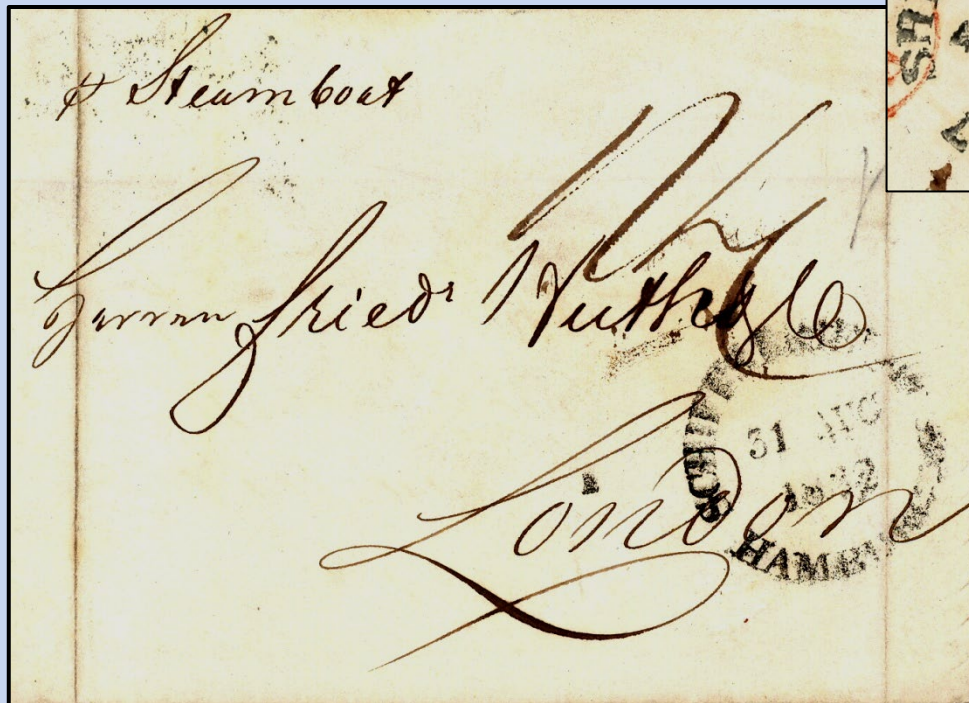 p Steamboat
Herren Fried^r Huth & Co
London
31 AUG
1832
HAMBURG
SH